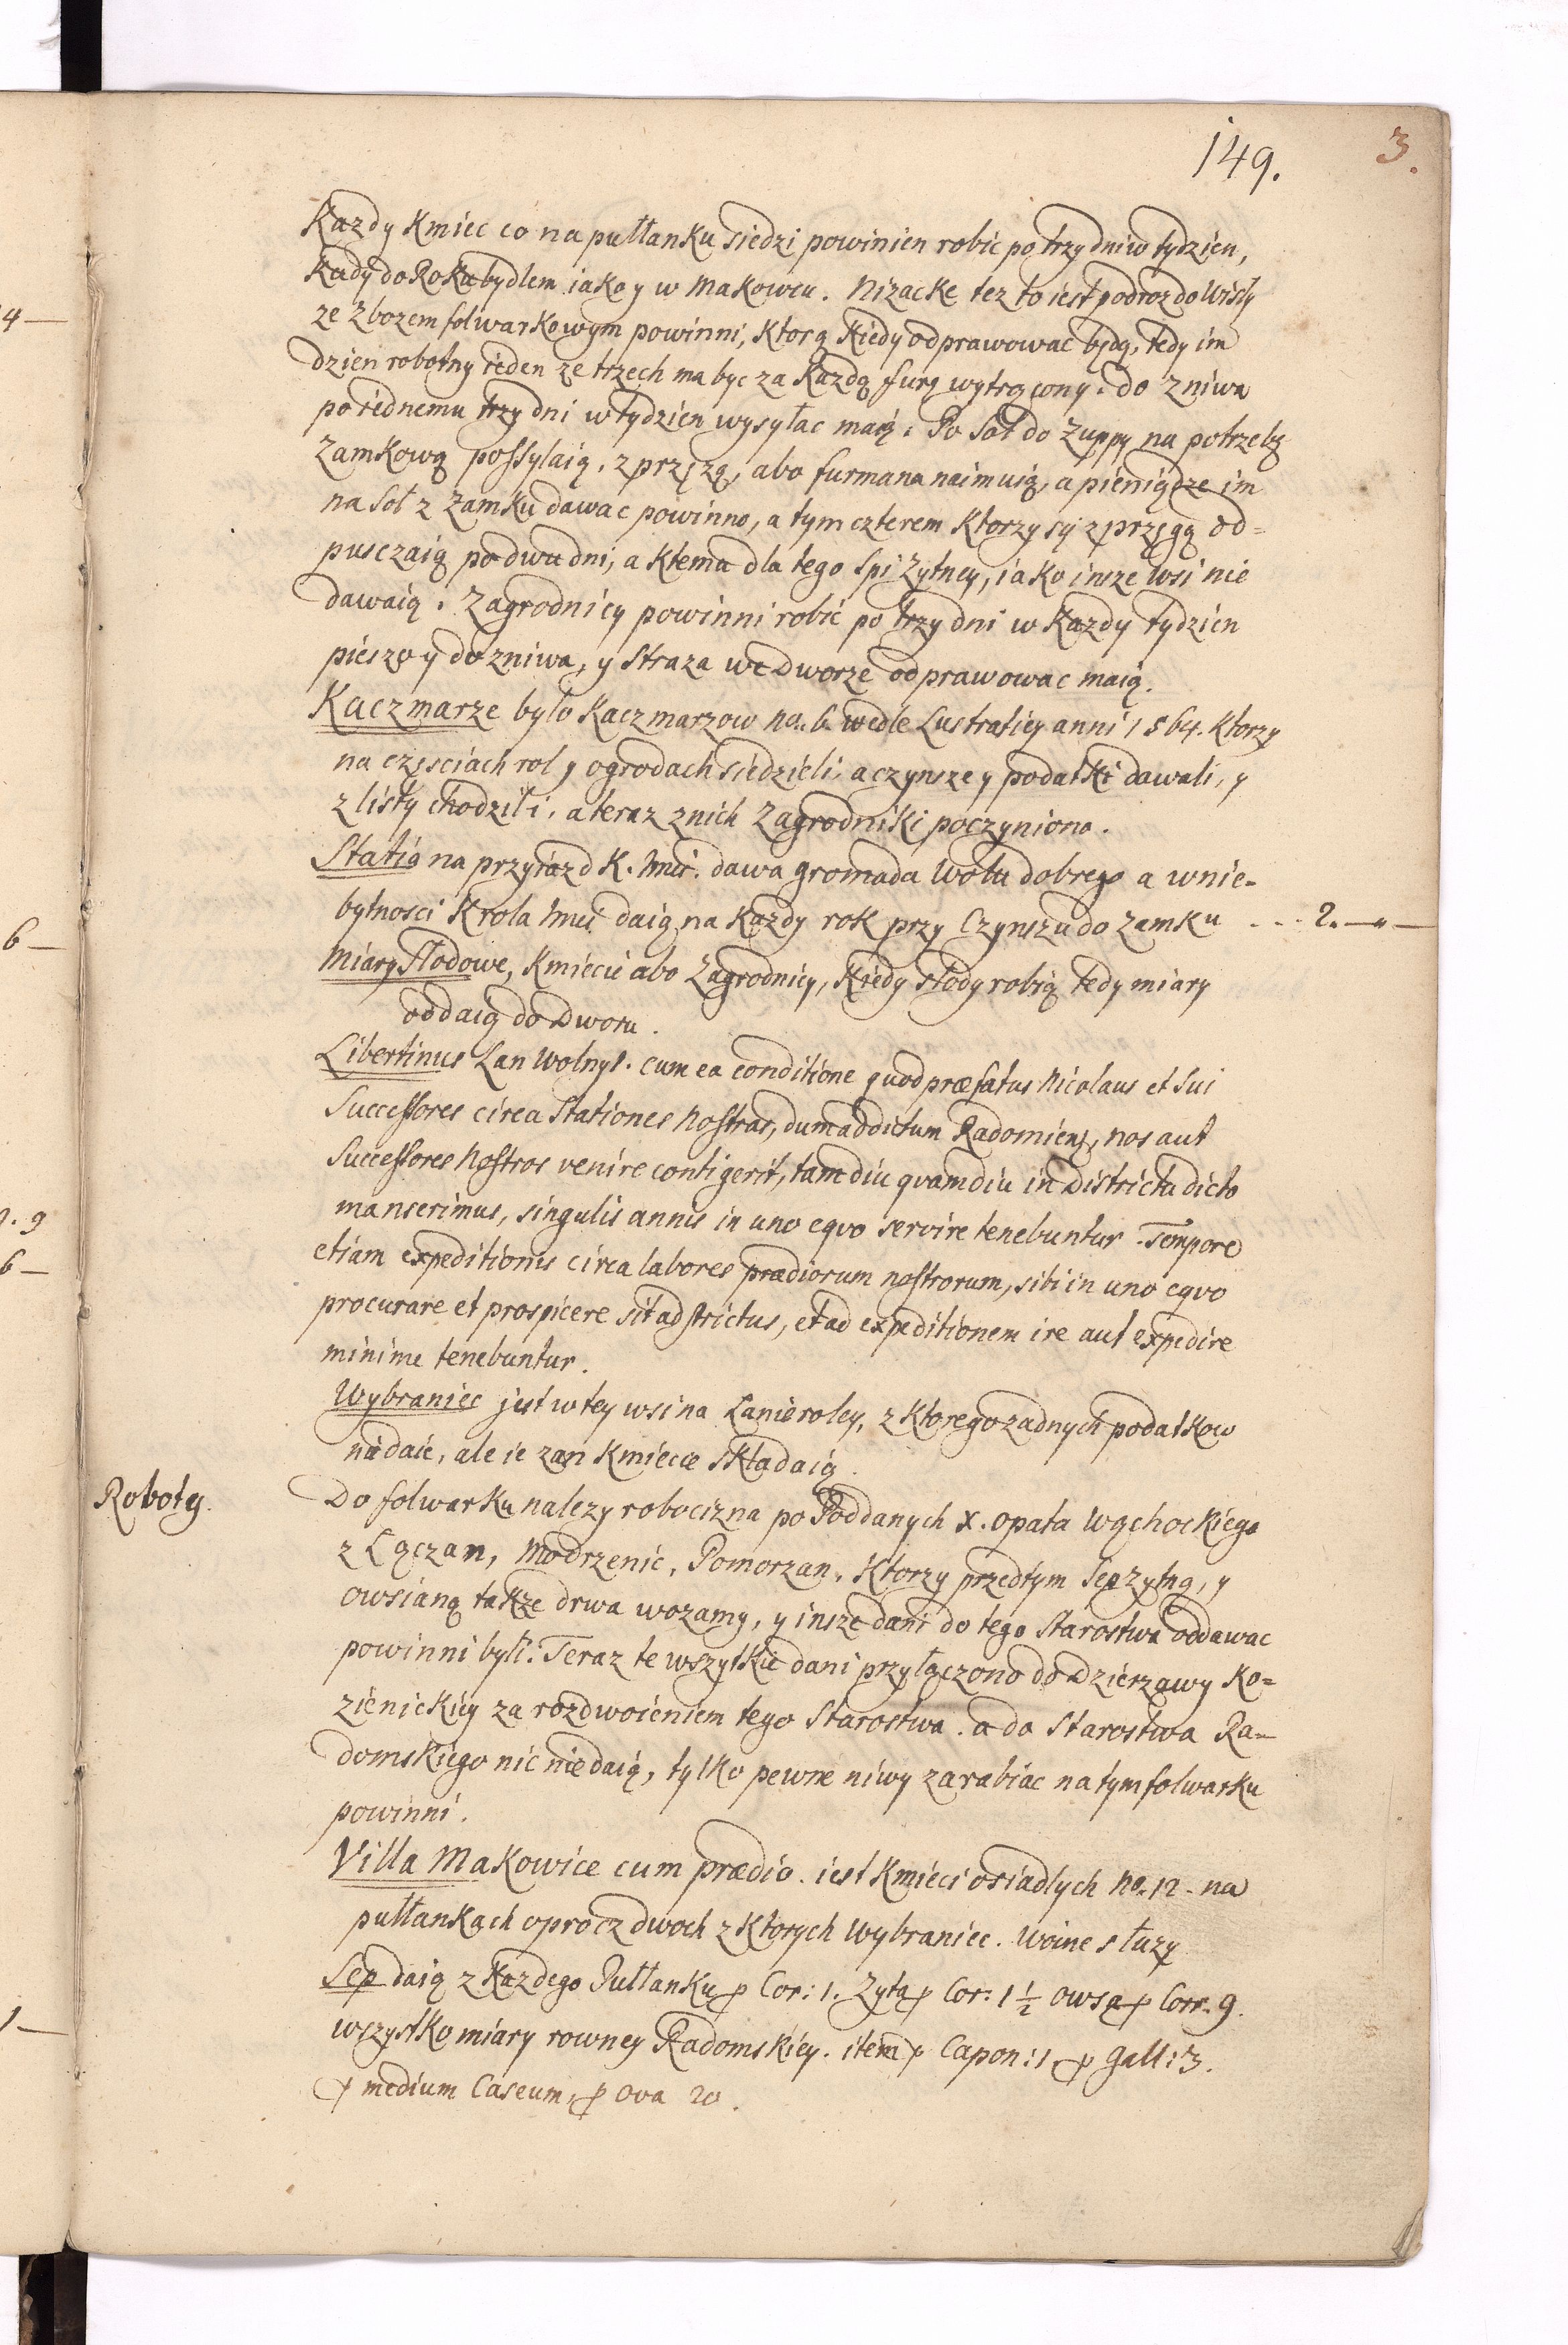 149.
3.
Kazdy Kmiec co na pułłanku siedzi powinien robic po trzy dni w tydzien,
Kędy do Roku bydlem iako y w Makowcu. Nizacke tez to iest podroz do Wisły
ze zbozem folwarkowym powinni, Ktorą Kiedy odprawowac będą, tedy im
dzien robotny ieden ze trzech ma byc za Kazdą furę wytrącony. do zniwa
po iednemu trzy dni w tydzien wysyłac maią. Po Sol do Zuppy na potrzebę
Zamkową possylaią, zprzęzą, abo furmana naimuią, a pieniądze im
na Sol z Zamku dawac powinno, a tym czterem Ktorzy są zprzęgą od=
pusczaią po dwu dni, a Ktema dla tego Spi Zytney, iako insze wsi nie
dawaią. Zagrodnicy powinni robic po trzy dni w Kazdy tydzien
pieszo y do zniwa, y Straza we Dworze odprawowac maią.
Kaczmarze bylo Kaczmarzow no. 6. wedle Lustratiey anni 1564. Ktorzy
na częsciach rol y ogrodach siedzieli, a czynsze y podatki dawali, y
z listy chodzili, a teraz znich Zagrodniki poczyniono.
Statia na przyiazd K. Jmci. dawa gromada Wołu dobrego a wnie-
bytnosci Krola Jmci daią na Kazdy rok przy Czynszu do Zamku - - - 2. — „ —
Miary Słodowe, Kmiecie abo Zagrodnicy, Kiedy słody robią tedy miary
oddaią do Dworu.
Libertinus Lan Wolny 1. cum ea conditione quod præfatus Nicolaus et Sui
Successores circa Stationes Nostras, dum ad dictum Radomien, nos aut
Successores Nostros venire contigerit, tamdiu quamdiu in Districtu dicto
manserimus, singulis annis in uno equo servire tenebuntur. Tempore
etiam expeditionis circa labores prædiorum nostrorum, sibi in uno equo
procurare et prospicere sit adstrictus, et ad expeditionem ire aut expedire
minime tenebuntur.
Wybraniec jest w tey wsi na Lanie roley, z Ktorego zadnych podatkow
niedaie, ale ie zan Kmiecie składaią.
Roboty.
Do folwarku nalezy robocizna po Poddanych X. Opata Wąchockiego
z Lączan, Modrzenic, Pomorzan, Ktorzy przedtym Sep zytną, y
owsianą takze drwa wozamy, y insze dani do tego Starostwa oddawac
powinni byli. Teraz te wszytkie dani przyłączono do Dzierzawy Ko=
zienickiey za rozdwoieniem tego Starostwa. a do Starostwa Ra=
domskiego nic niedaią, tylko pewne niwy zarabiac na tym folwarku
powinni.
Villa Makowice cum prædio. iest Kmieci osiadlych no. 12. na
pułłankach oprocz dwoch z Ktorych Wybraniec. Woine służy
Sep daią z Kazdego Pułłanku p Cor: 1. Zyta p Cor: 1 1/2 Owsa p Corr. 9.
wszystko miary rowney Radomskiey. item p Capon: 1 p gall: 3.
p medium Caseum, p ova 20.
4 —
6 —
9
6 —
1 —